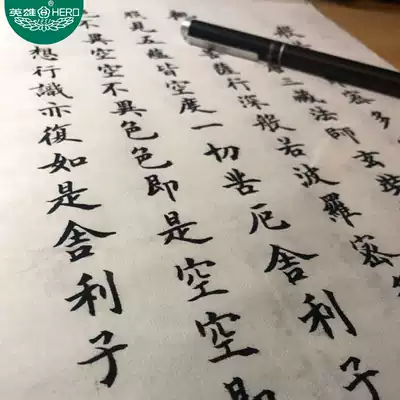 英雄 HERO
密多
三藏法師玄奘
薩行深般若波羅密
見五蘊皆空度一切苦厄舍利子
不異空空不異色色即是空空即
想行識亦復如是舍利子